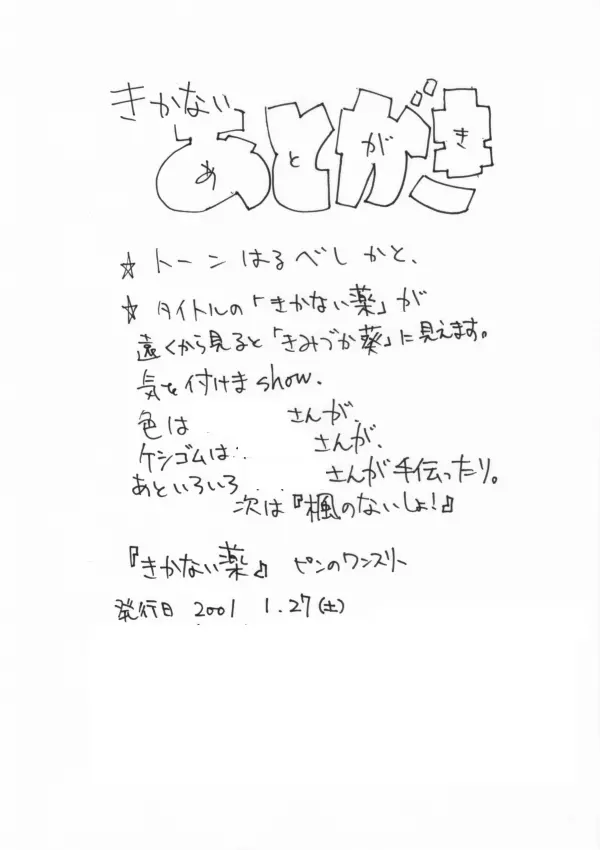 きかない
あとがき
☆ トーン はるべし かと、
☆ タイトルの「きかない薬」が
遠くから見ると「きみづか葵」に見えます。
気を付けまshow.
色は さんが、
ケシゴムは さんが、
あといろいろ さんが手伝ったり。
次は『楓のないしょ!』
『きかない薬』 ピンのワンスリー
発行日 2001 1.27(土)